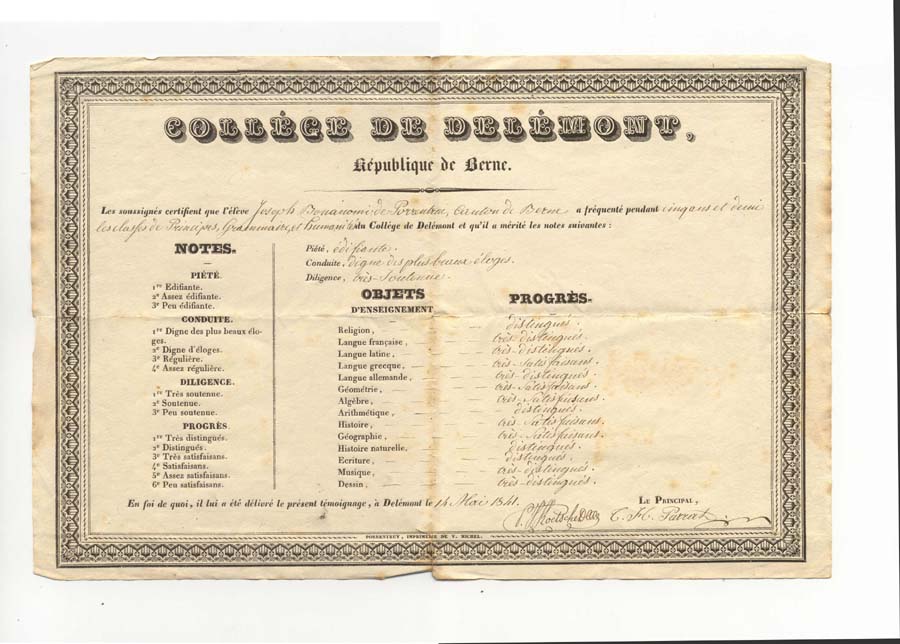 COLLÈGE DE DELÉMONT,
République de Berne.
Les soussignés certifient que l'élève Joseph Bonanomi de Porrentruy, Canton de Berne a fréquenté pendant cinq ans et demi
les classes de Principes, Grammaire, et humanités du Collège de Delémont et qu'il a mérité les notes suivantes :
NOTES.
PIÉTÉ.
1re Edifiante.
2e Assez édifiante.
3e Peu édifiante.
CONDUITE.
1re Digne des plus beaux élo-
ges.
2e Digne d'éloges.
3e Régulière.
4e Assez régulière.
DILIGENCE.
1re Très soutenue.
2e Soutenue.
3e Peu soutenue.
PROGRÈS.
1re Très distingués.
2e Distingués.
3e Très satisfaisans.
4e Satisfaisans.
5e Assez satisfaisans.
6e Peu satisfaisans.
Piété, édifiante.
Conduite, digne des plus beaux éloges.
Diligence, très-soutenue.
OBJETS
D'ENSEIGNEMENT
PROGRÈS.
Religion, distingués.
Langue française, très-distingués.
Langue latine, très-distingués.
Langue grecque, très-satisfaisans.
Langue allemande, très-distingués.
Géométrie, très-satisfaisans.
Algèbre, très-satisfaisans.
Arithmétique, distingués.
Histoire, très-satisfaisans.
Géographie, très-satisfaisans.
Histoire naturelle, distingués.
Ecriture, distingués.
Musique, très-distingués.
Dessin, très-distingués.
En foi de quoi, il lui a été délivré le présent témoignage, à Delémont le 14 Mai 1841.
LE PRINCIPAL,
PORRENTRUY, IMPRIMERIE DE V. MICHEL.